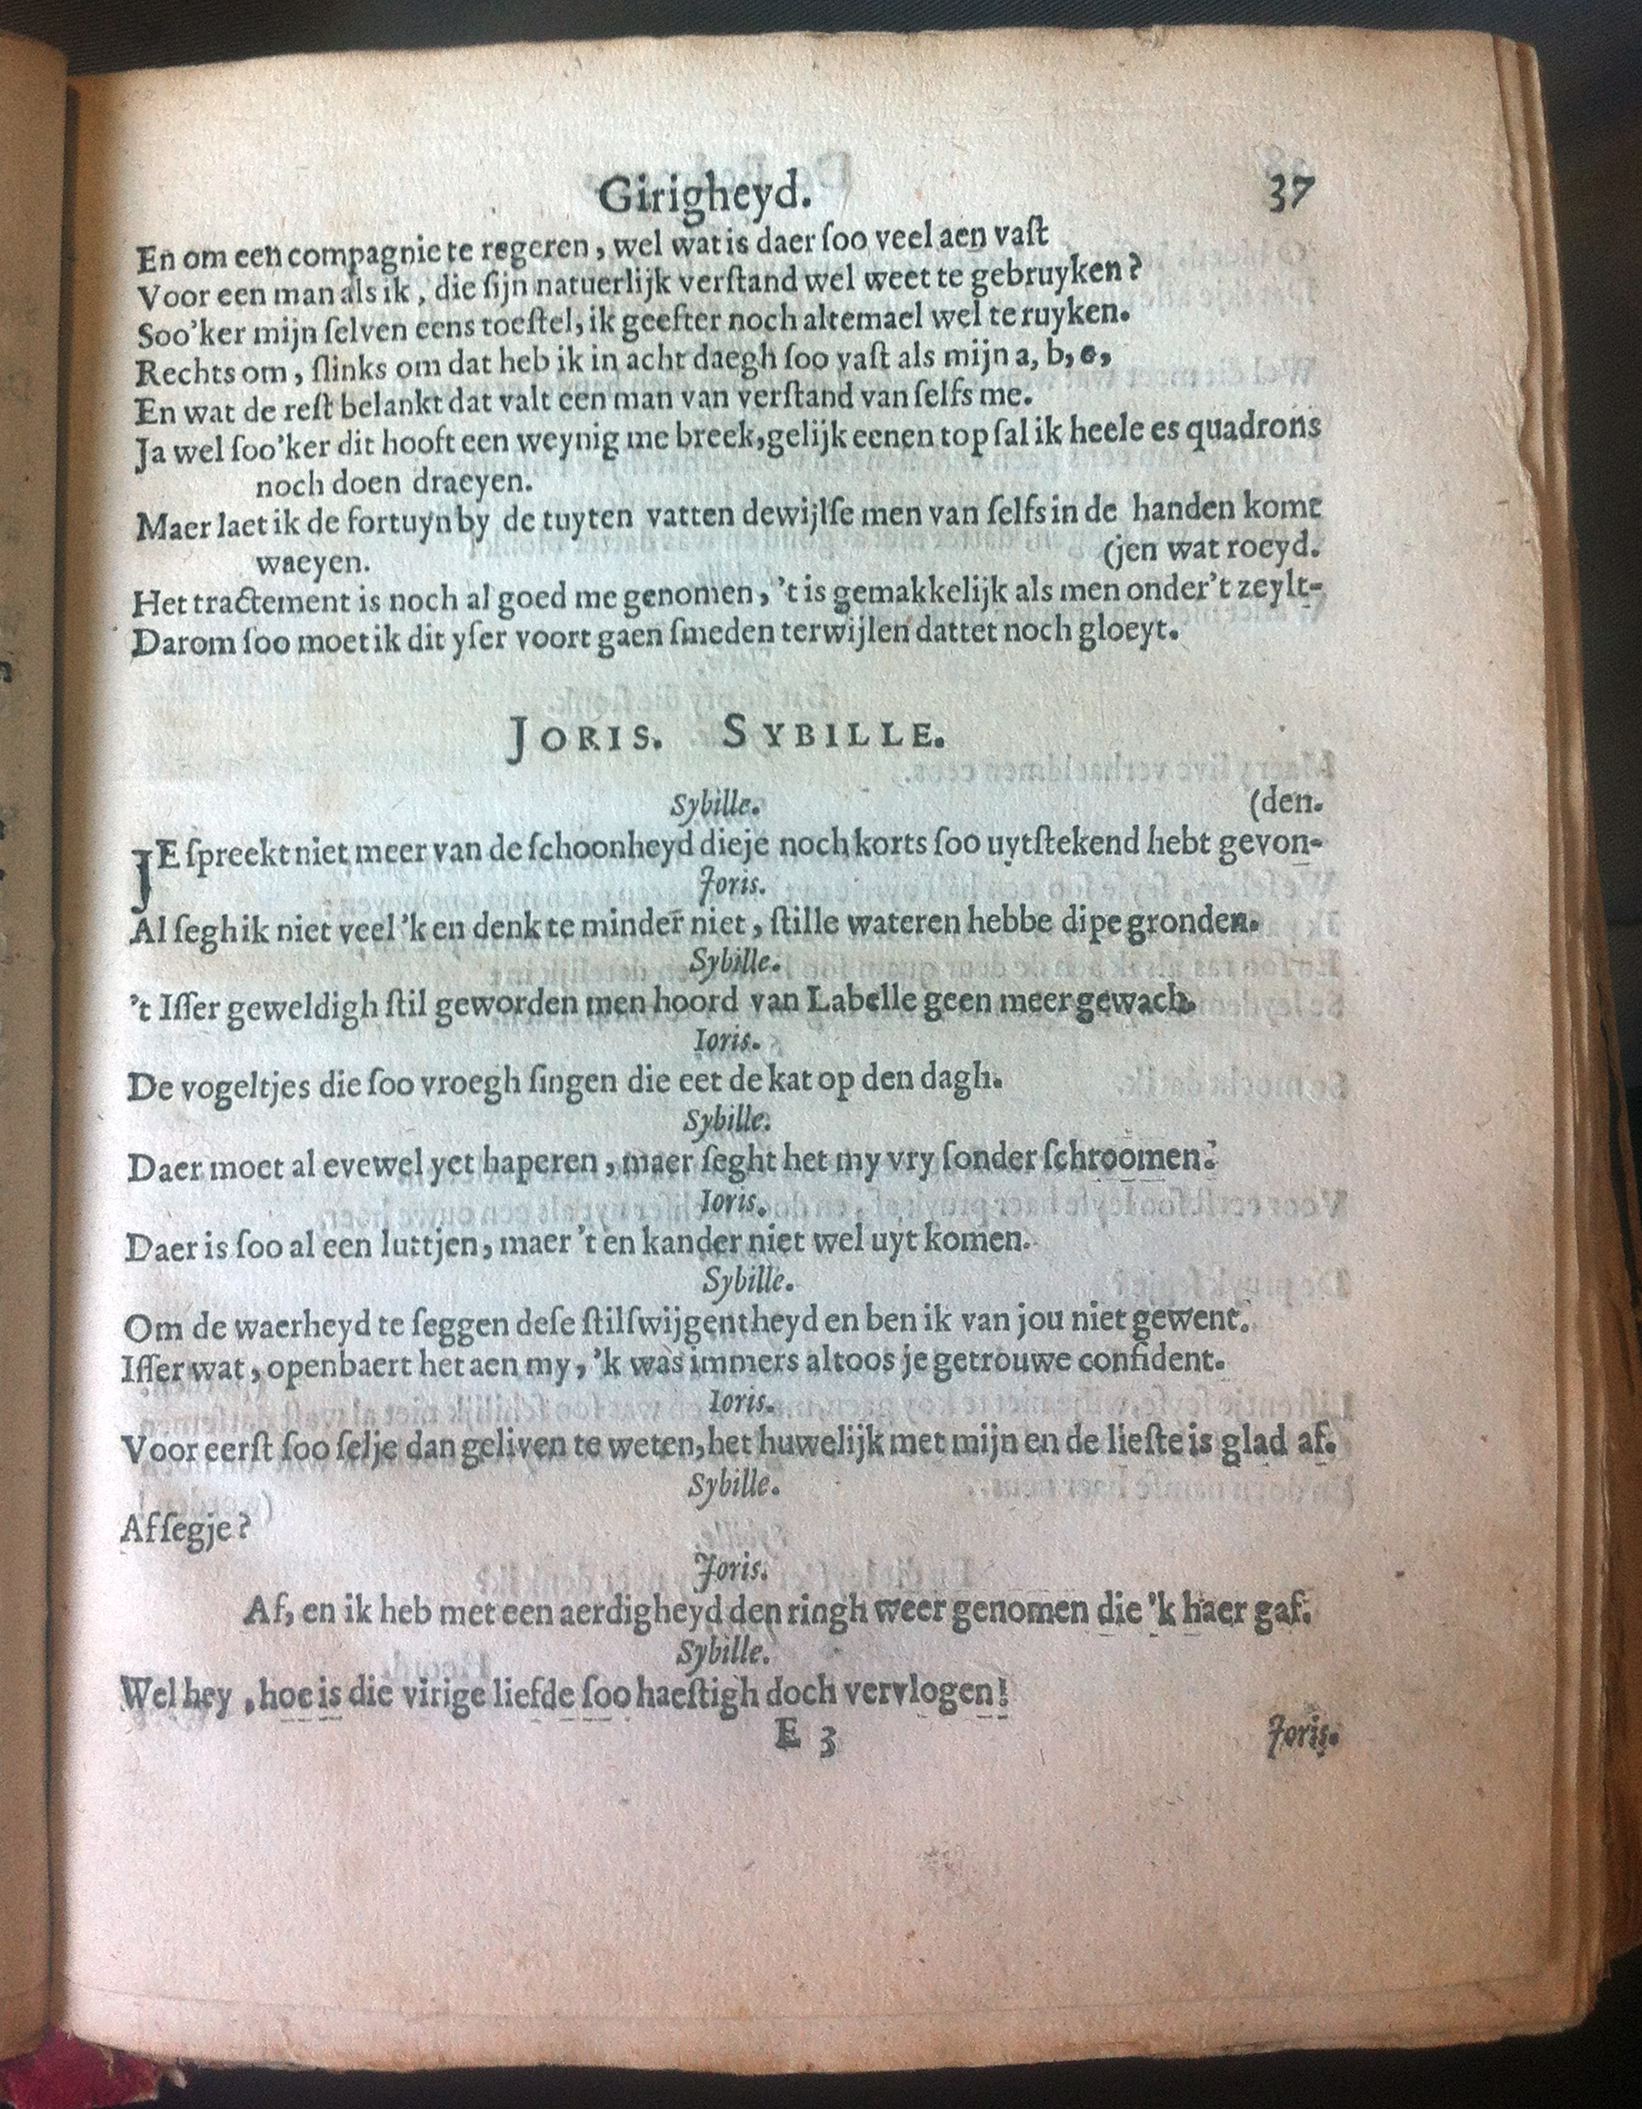 Girigheyd. 37
En om een compagnie te regeren, wel wat is daer ſoo veel aen vaſt
Voor een man als ik, die ſijn natuerlijk verſtand wel weet te gebruyken?
Soo'ker mijn ſelven eens toeſtel, ik geefter noch altemael wel te ruyken.
Rechts om, ſlinks om dat heb ik in acht daegh ſoo vaſt als mijn a, b, c,
En wat de reſt belankt dat valt een man van verſtand van ſelfs me.
Ja wel ſoo'ker dit hooft een weynig me breek, gelijk eenen top ſal ik heele es quadrons
noch doen draeyen.
Maer laet ik de fortuyn by de tuyten vatten dewijlſe men van ſelfs in de handen komt
waeyen. (jen wat roeyd.
Het tractement is noch al goed me genomen, 't is gemakkelijk als men onder't zeylt-
Darom ſoo moet ik dit yſer voort gaen ſmeden terwijlen dattet noch gloeyt.
JORIS. SYBILLE.
Sybille. (den.
JE ſpreekt niet meer van de ſchoonheyd dieje noch korts ſoo uytſtekend hebt gevon-
Joris.
Al ſegh ik niet veel 'k en denk te minder niet, ſtille wateren hebbe dipe gronden.
Sybille.
't Iſſer geweldigh ſtil geworden men hoord van Labelle geen meer gewach.
Ioris.
De vogeltjes die ſoo vroegh ſingen die eet de kat op den dagh.
Sybille.
Daer moet al evewel yet haperen, maer ſeght het my vry ſonder ſchroomen?
Ioris.
Daer is ſoo al een luttjen, maer 't en kander niet wel uyt komen.
Sybille.
Om de waerheyd te ſeggen deſe ſtilſwijgentheyd en ben ik van jou niet gewent.
Iſſer wat, openbaert het aen my, 'k was immers altoos je getrouwe confident.
Ioris.
Voor eerſt ſoo ſelje dan geliven te weten, het huwelijk met mijn en de lieſte is glad af.
Sybille.
Af ſegje?
Joris.
Af, en ik heb met een aerdigheyd den ringh weer genomen die 'k haer gaf.
Sybille.
Wel hey, hoe is die virige liefde ſoo haeſtigh doch vervlogen!
E 3 Joris.